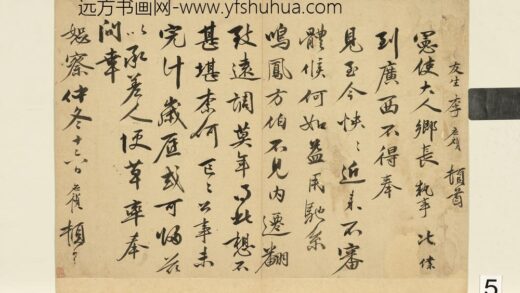 远方书画网-www.yfshuhua.com
友生李應禎頓首
憲使大人鄉長執事比僕
到廣西不得奉
見至今怏怏近来不審
體候何如益用馳系
鳴鳳方伯不見内遷翻
致遠調莫年得此想不
甚堪柰何某公事未
完计歲厎或可歸兹
以承差人便草率奉
问幸
恕察仲冬十六日應禎頓首
5